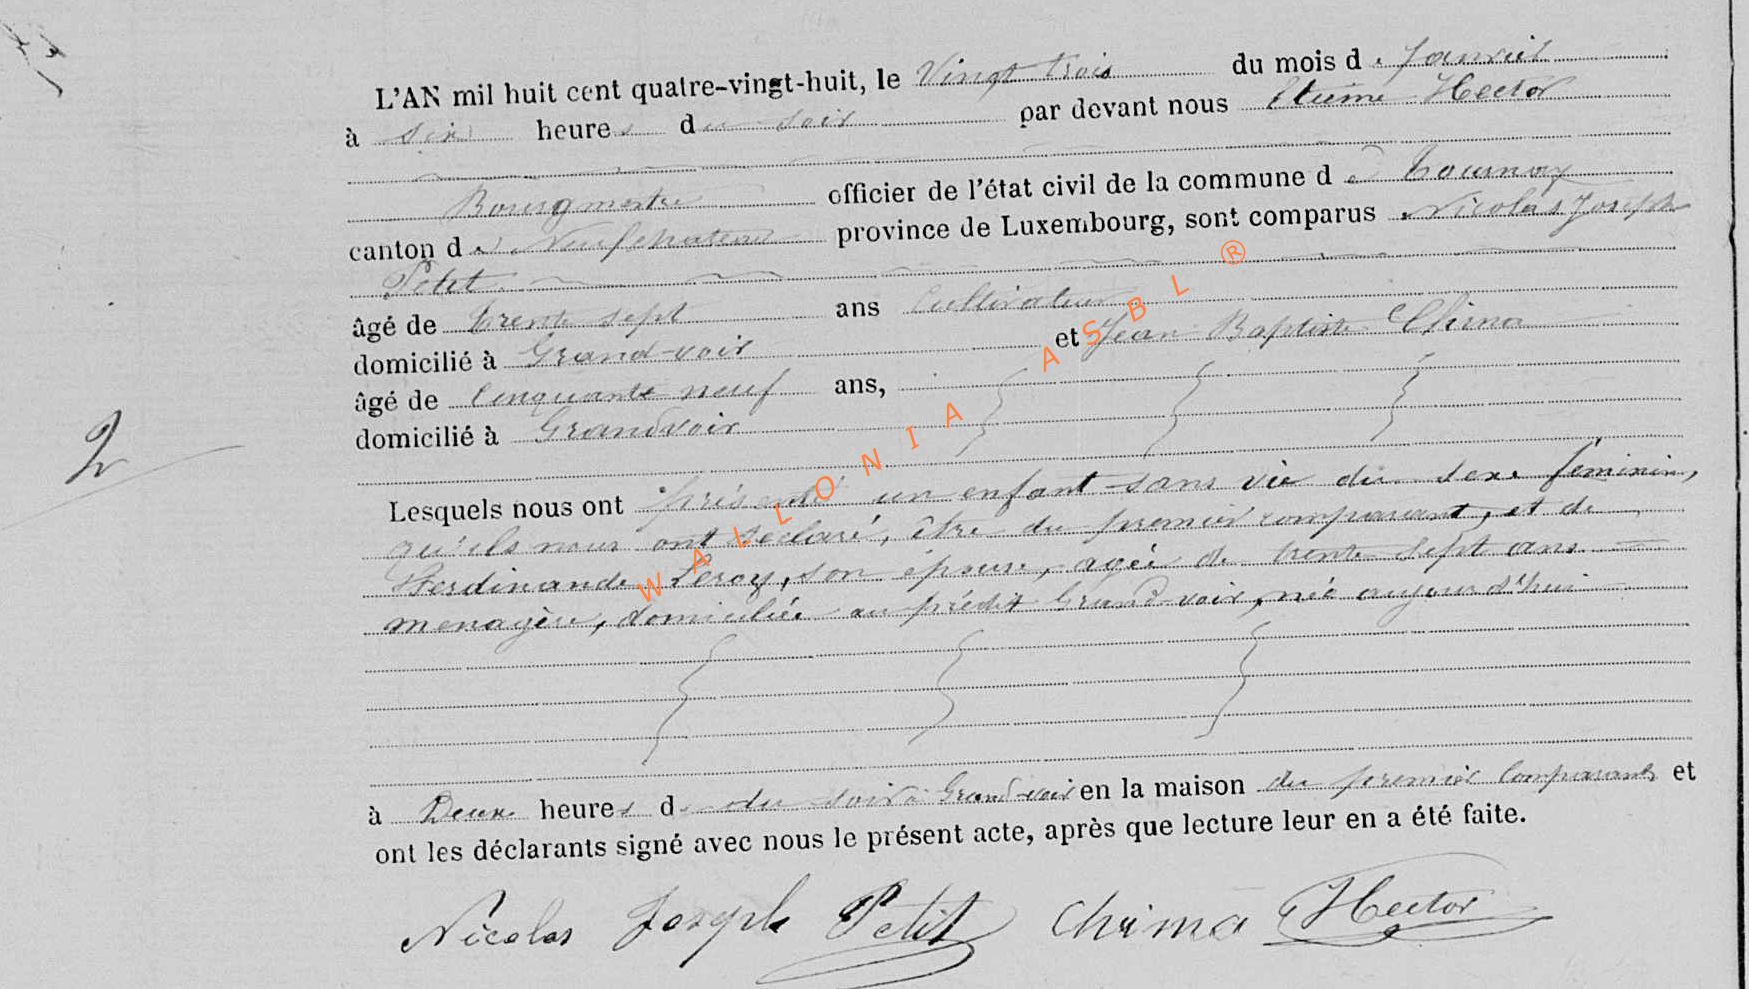 L'AN mil huit cent quatre-vingt-huit, le Vingt trois du mois de Janvier
à six heures du soir par devant nous Etienne Hector
Bourgmestre officier de l'état civil de la commune de Tournay
canton de Neufchateau province de Luxembourg, sont comparus Nicolas Joseph
Petit
âgé de trente sept ans Cultivateur
domicilié à Grand-voir et Jean Baptiste Chima
âgé de Cinquante neuf ans,
domicilié à Grandvoir
2
Lesquels nous ont présenté un enfant sans vie du sexe féminin,
qu'ils nous ont déclaré, être du premier comparant, et de
Ferdinande Leroy, son épouse, agée de trente sept ans
menagère, domiciliée au prédit Grand-voir, née aujourd'hui
à Deux heures d du soir à Grand-voir en la maison du premier Comparant et
ont les déclarants signé avec nous le présent acte, après que lecture leur en a été faite.
Nicolas Joseph Petit Chima Hector
WALLONIA ASBL ®